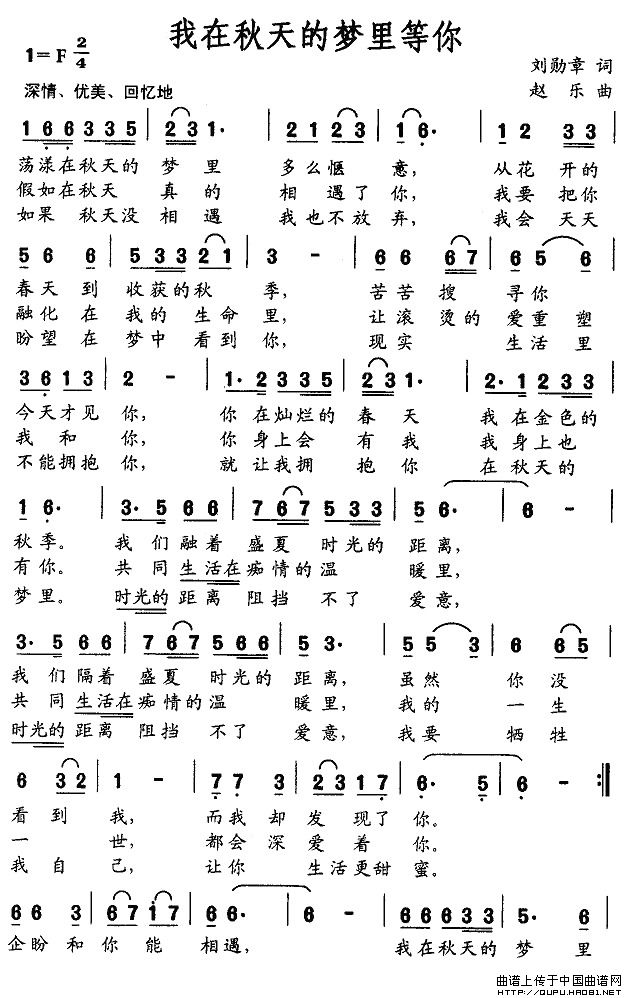 我在秋天的梦里等你
1=F 2/4
刘勋章 词
深情、优美、回忆地
赵 乐 曲
1 6 6 3 3 5 | 2 3 1· | 2 1 2 3 | 1 6· | 1 2 3 3 |
荡漾在秋天的 梦 里 多么惬 意， 从花 开的
假如在秋天 真 的 相 遇了 你， 我要 把你
如果 秋天没 相 遇 我也不放 弃， 我会 天天
5 6 6 | 5 3 3 2 1 | 3 - | 6 6 6 7 | 6 5 6 |
春天 到 收获的秋 季， 苦苦 搜 寻你
融化 在 我的 生命 里， 让滚 烫的 爱重 塑
盼望 在 梦中 看到 你， 现实 生活 里
3 6 1 3 | 2 - | 1· 2 3 3 5 | 2 3 1· | 2· 1 2 3 3 |
今天才见 你， 你 在灿烂的 春 天 我 在金色的
我 和 你， 你 身上会 有 我 我 身上也
不能拥抱 你， 就 让我拥 抱 你 在 秋天的
1 6· | 3· 5 6 6 | 7 6 7 5 3 3 | 5 6· | 6 - |
秋季。 我 们融着 盛夏 时光的 距离，
有你。 共 同 生活在痴情的温 暖里，
梦里。 时光的 距离 阻挡 不了 爱意，
3· 5 6 6 | 7 6 7 5 6 6 | 5 3· | 5 5 3 | 6 6 5 |
我 们隔着 盛夏 时光的 距离， 虽然 你 没
共 同 生活在痴情的温 暖里， 我的 一 生
时光的 距离 阻挡 不了 爱意， 我要 牺 牲
6 3 2 | 1 - | 7 7 3 | 2 3 1 7 | 6· 5 | 6 - :‖
看 到 我， 而我 却 发 现了 你。
一 世， 都会 深 爱 着 你。
我 自 己， 让你 生活更甜 蜜。
6 6 3 | 6 7 1 7 | 6 6· | 6 - | 6 6 6 3 3 | 5· 6 |
企盼 和 你 能 相遇， 我在秋天的 梦 里
曲谱上传于中国曲谱网
HTTP://QUPU.HAO81.NET